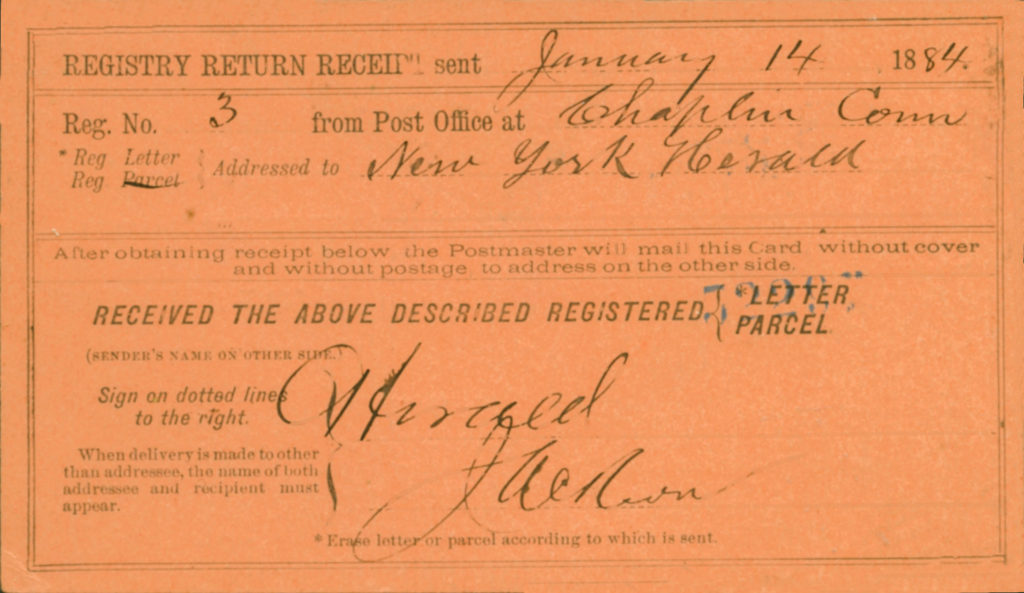 REGISTRY RETURN RECEIPT sent January 14 1884.
Reg. No. 3 from Post Office at Chaplin Conn
* Reg Letter
Reg Parcel } Addressed to New York Herald
After obtaining receipt below the Postmaster will mail this Card without cover
and without postage to address on the other side.
RECEIVED THE ABOVE DESCRIBED REGISTERED { *LETTER
PARCEL.
(SENDER'S NAME ON OTHER SIDE.)
Sign on dotted lines
to the right.
When delivery is made to other
than addressee, the name of both
addressee and recipient must
appear.
* Erase letter or parcel according to which is sent.